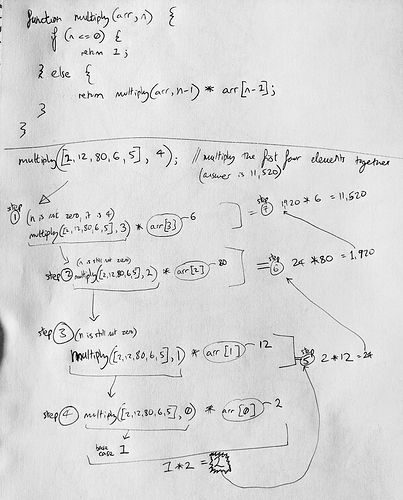 function multiply(arr, n) {
if (n <= 0) {
return 1;
} else {
return multiply(arr, n-1) * arr[n-1];
}
}
multiply([2,12,80,6,5], 4); // multiply the first four elements together
(answer is 11,520)
step 1 (n is not zero, it is 4)
multiply([2,12,80,6,5], 3) * arr[3] 6
= step 7 1920 * 6 = 11,520
(n is still not zero)
step 2 multiply([2,12,80,6,5], 2) * arr[2] 80
= step 6 24 * 80 = 1,920
step 3 (n is still not zero)
multiply([2,12,80,6,5], 1) * arr[1] 12
= step 5 2 * 12 = 24
step 4 multiply([2,12,80,6,5], 0) * arr[0] 2
base case 1
1 * 2 = 2